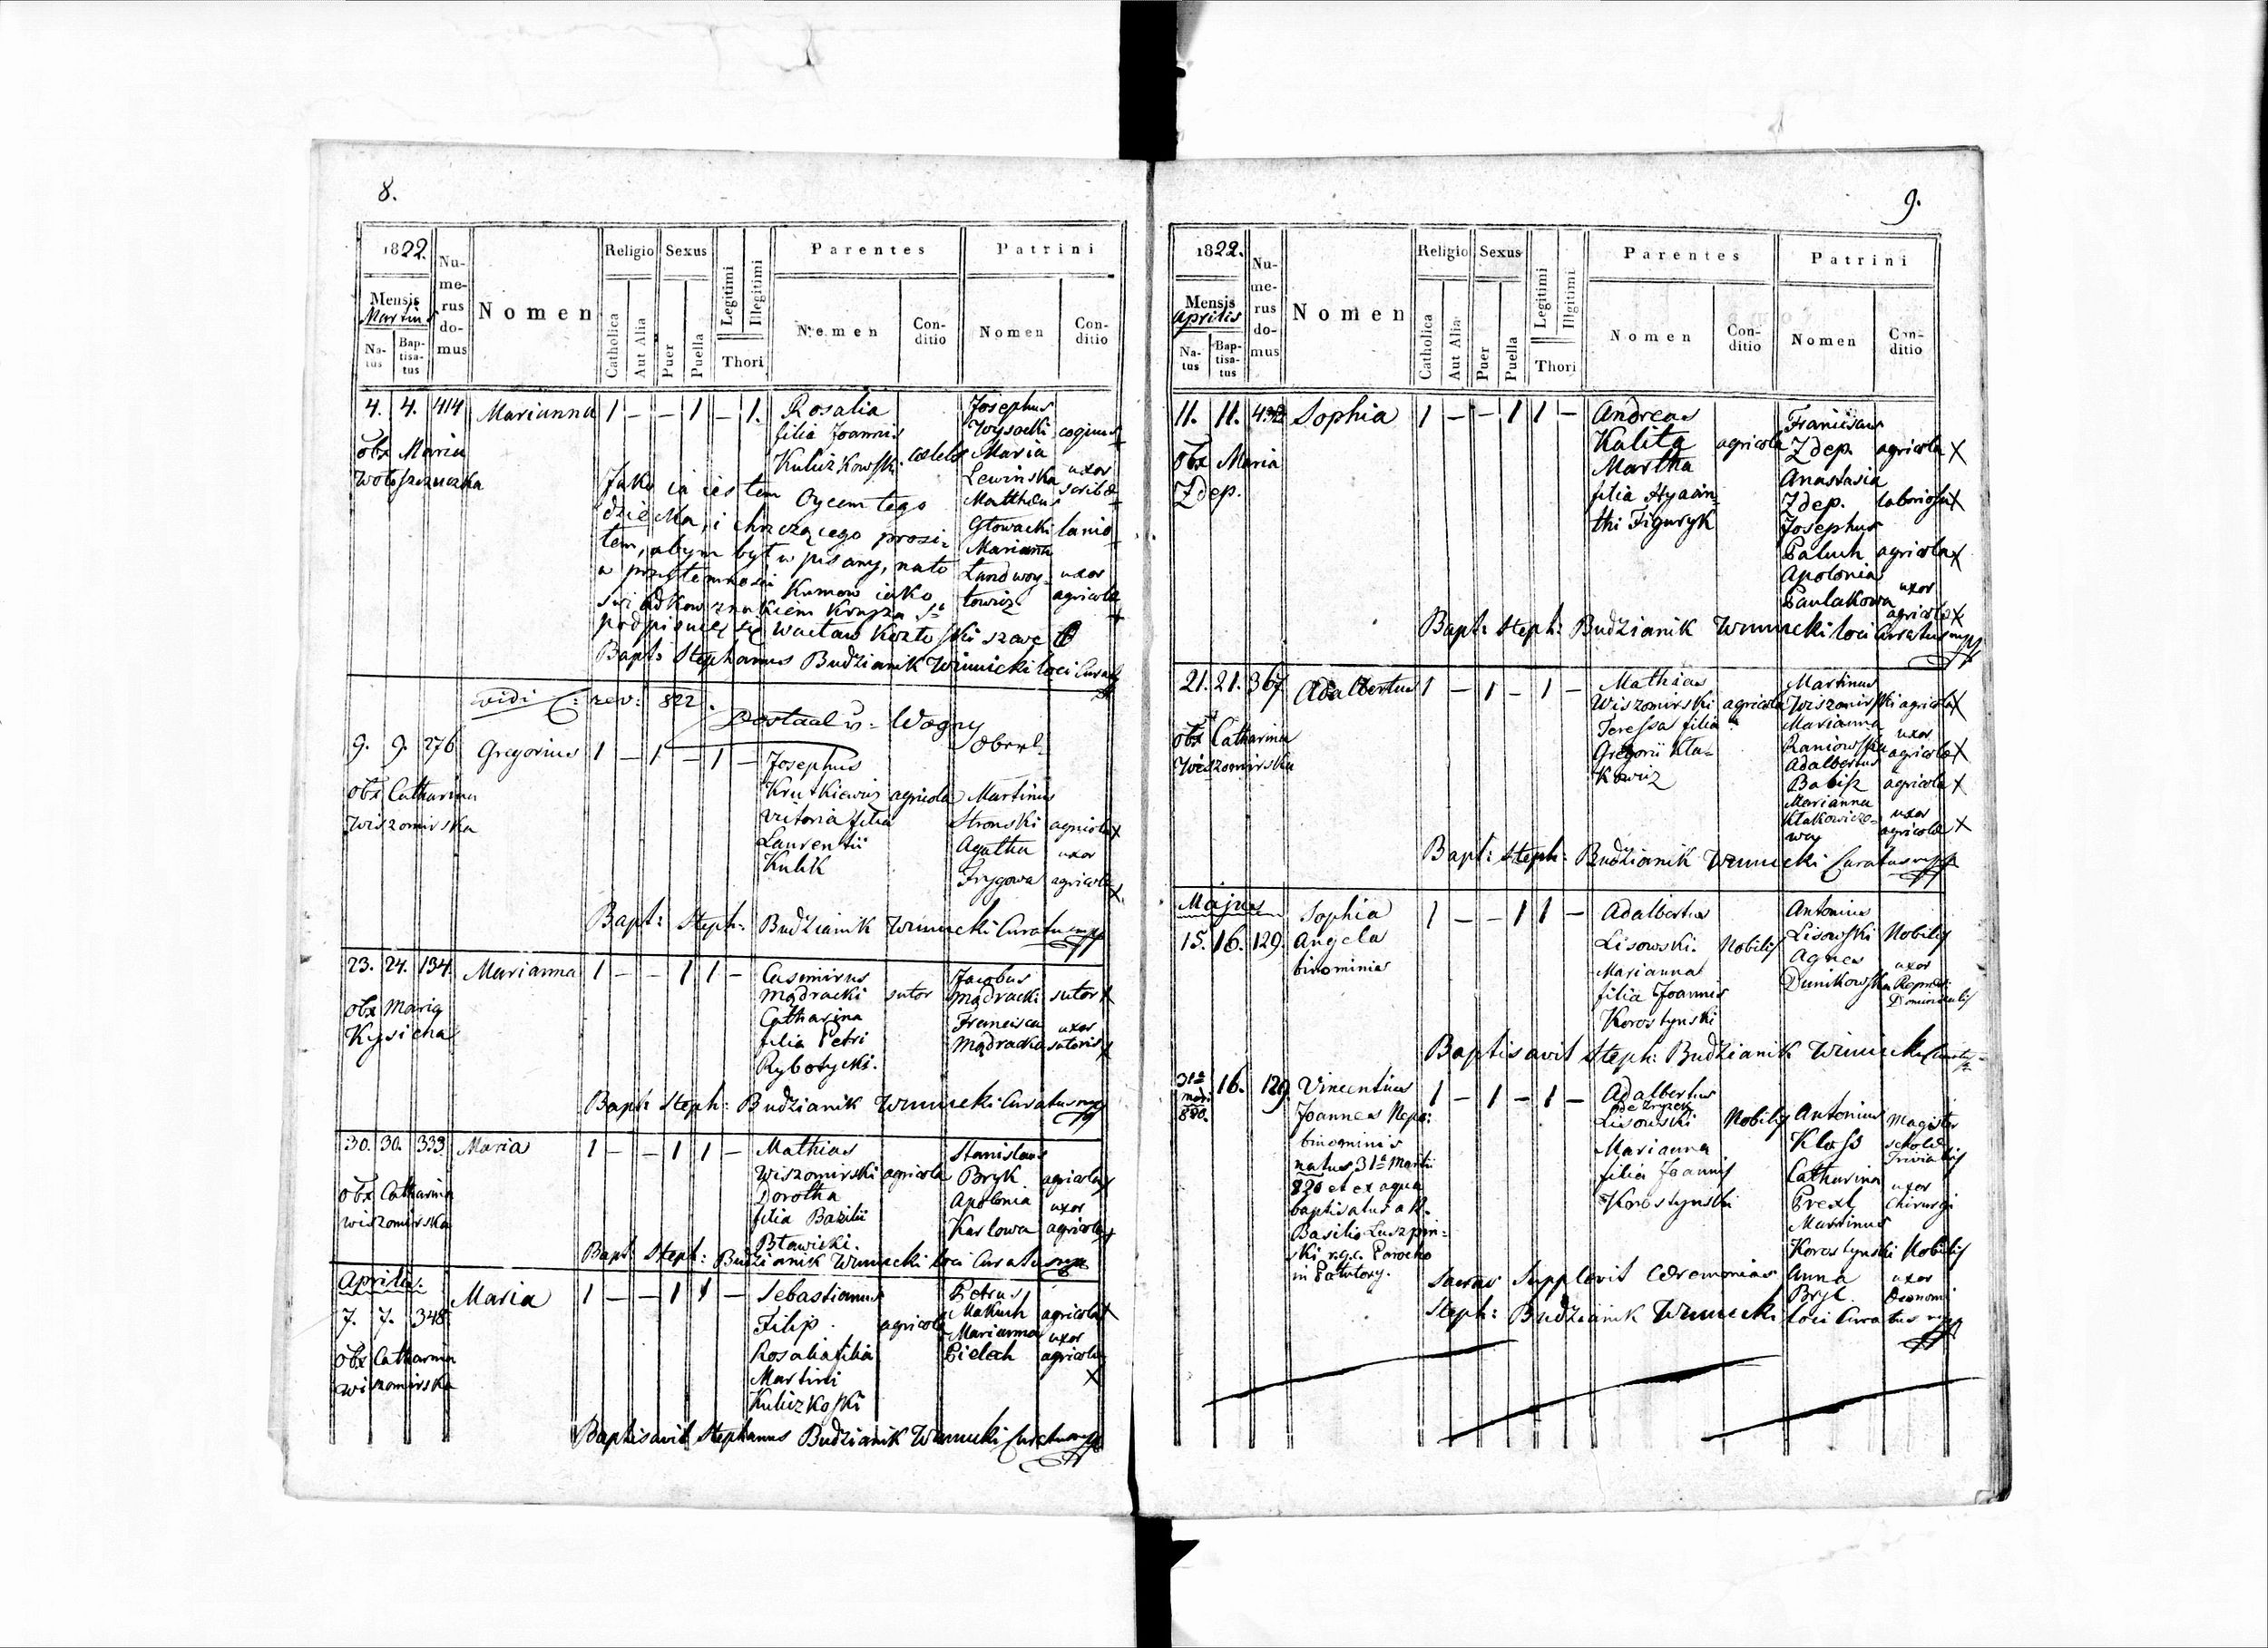 8.
1822.
Mensis
Martius
Natus
Baptisatus
Numerus domus
Nomen
Religio
Catholica
Aut Alia
Sexus
Puer
Puella
Legitimi
Illegitimi
Thori
Parentes
Nomen
Conditio
Patrini
Nomen
Conditio
4. 4. 414 Marianna 1 – – 1 – 1.
Obx Maria
Rosalia
filia Joannis
Josephus
Wysocki
Maria
Lewinska uxor
Mattheus
Głowacki lanio
Marianna
uxor
agricola
Jako ia iestem Oycem tego
dziecka, i chrzczącego prosi-
łem, abym był wpisany, na to
w przytomności Kumow iako
swiadkow znakiem Krzyża S.
podpisuię się
Bapt: Stephanus Budzianik Winnicki loci Curatus
vidi C: rev: 822.
9. 9. 276 Gregorius 1 – 1 – 1 –
Obx Catharina
Wiszomirska
Josephus
Krutkiewicz agricola
Victoria filia
Laurentii
Kulik
Martinus
Stronski agricola x
Agatha uxor
Frygowa agricola x
Bapt: Steph: Budzianik Winnicki Curatus mpp
23. 24. 134. Marianna 1 – – 1 1 –
Obx Maria
Kysicha
Casimirus
Mądracki sutor
Catharina
filia Petri
Rybotycki.
Jacobus
Mądracki sutor x
Francisca uxor
Mądracka sutoris x
Bapt: Steph: Budzianik Winnicki Curatus mpp
30. 30. 333. Maria 1 – – 1 1 –
Obx Catharina
Wiszomirska
Mathias
Wiszomirski agricola
Dorotha
filia Bazilii
Bławicki.
Stanislaus
Bryk agricola x
Apolonia uxor
Karlowa agricola x
Bapt: Steph: Budzianik Winnicki loci Curatus mpp
Aprilis.
7. 7. 348 Maria 1 – – 1 1 –
Obx Catharina
Wiszomirska
Sebastianus
Filip. agricola
Rosalia filia
Martini
Petrus
Makuch agricola x
Marianna uxor
Pielech agricola
x
Baptisavit Stephanus Budzianik Winnicki Curatus mpp
9.
1822.
Mensis
Aprilis
Natus
Baptisatus
Numerus domus
Nomen
Religio
Catholica
Aut Alia
Sexus
Puer
Puella
Legitimi
Illgitimi
Thori
Parentes
Nomen
Conditio
Patrini
Nomen
Conditio
11. 11. Sophia 1 – – 1 1 –
Obx Maria
Zdep.
Andreas
Kalita agricola
Martha
filia Hyacin-
thi Figuryk
Franciscus
Zdep. agricola x
Anastasia
Zdep. x
Josephus
Paluch agricola x
Apolonia
Pawlakowa uxor
agricolæ x
Bapt: Steph: Budzianik Winnicki loci Curatus mpp
21. 21. 367 Adalbertus 1 – 1 – 1 –
Obx Catharina
Wiszomirska
Mathias
Wiszomirski agricola
Teressa filia
Gregorii Kła-
kowicz
Martinus
Wiszomirski agricola x
Marianna uxor
Raniowska agricolæ x
Adalbertus
Babisz agricola x
Marianna
Kłakowiczo- uxor
wa agricolæ x
Bapt: Steph: Budzianik Winnicki Curatus mpp
Majus
15. 16. 129. Sophia 1 – – 1 1 –
Angela
binominis
Adalbertus
Lisowski. Nobilis
Marianna
filia Joannis
Korostynski
Antonius
Lisowski Nobilis
Agnes uxor
Dunikowska
Baptisavit Steph: Budzianik Winnicki Curatus
31a
Marti
820.
16. 129. Vincentius 1 – 1 – 1 –
Joannes Nepo:
binominis
natus 31a Martii
820 et ex aqua
baptisatus a R.
Basilio
r.g.c. Parocho
in Patutory.
Adalbertus
Lisowski Nobilis
Marianna
filia Joannis
Korostynski
Antonius Magister
Kloss scholæ
Trivialis
Catharina uxor
Prexl chirurgi
Martinus
Korostynski Nobilis
Anna uxor
Bryl. Œconomi
Sacras Supplevit Cæremonias
Steph: Budzianik Winnicki loci Curatus mpp